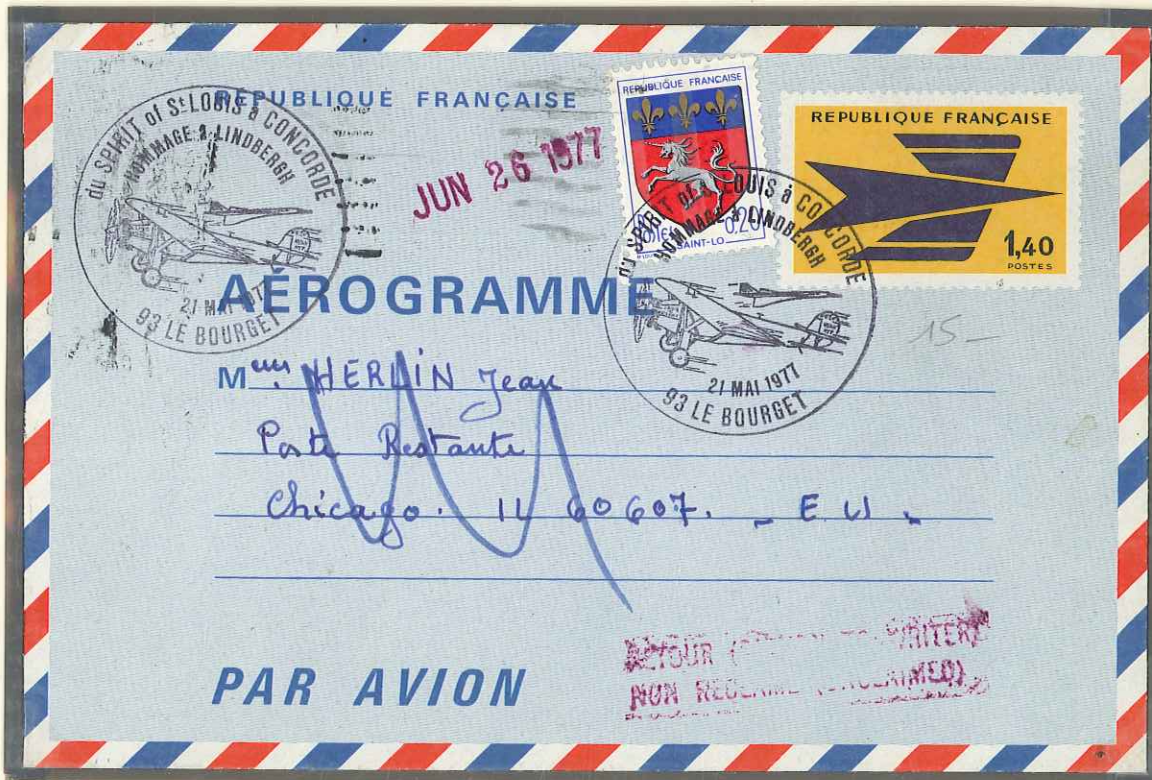 RÉPUBLIQUE FRANÇAISE
du SPIRIT of St LOUIS à CONCORDE
HOMMAGE à LINDBERGH
21 MAI 1977
93 LE BOURGET
JUN 26 1977
REPUBLIQUE FRANÇAISE
0.20
SAINT-LO
REPUBLIQUE FRANÇAISE
1,40
POSTES
du SPIRIT OF LOUIS à CONCORDE
HOMMAGE à LINDBERGH
21 MAI 1977
93 LE BOURGET
AÉROGRAMME
15 –
M HERLIN Jean
Poste Restante
Chicago. IL 60607. - E U -
RETOUR WRITER)
NON RECLAME (UNCLAIMED)
PAR AVION